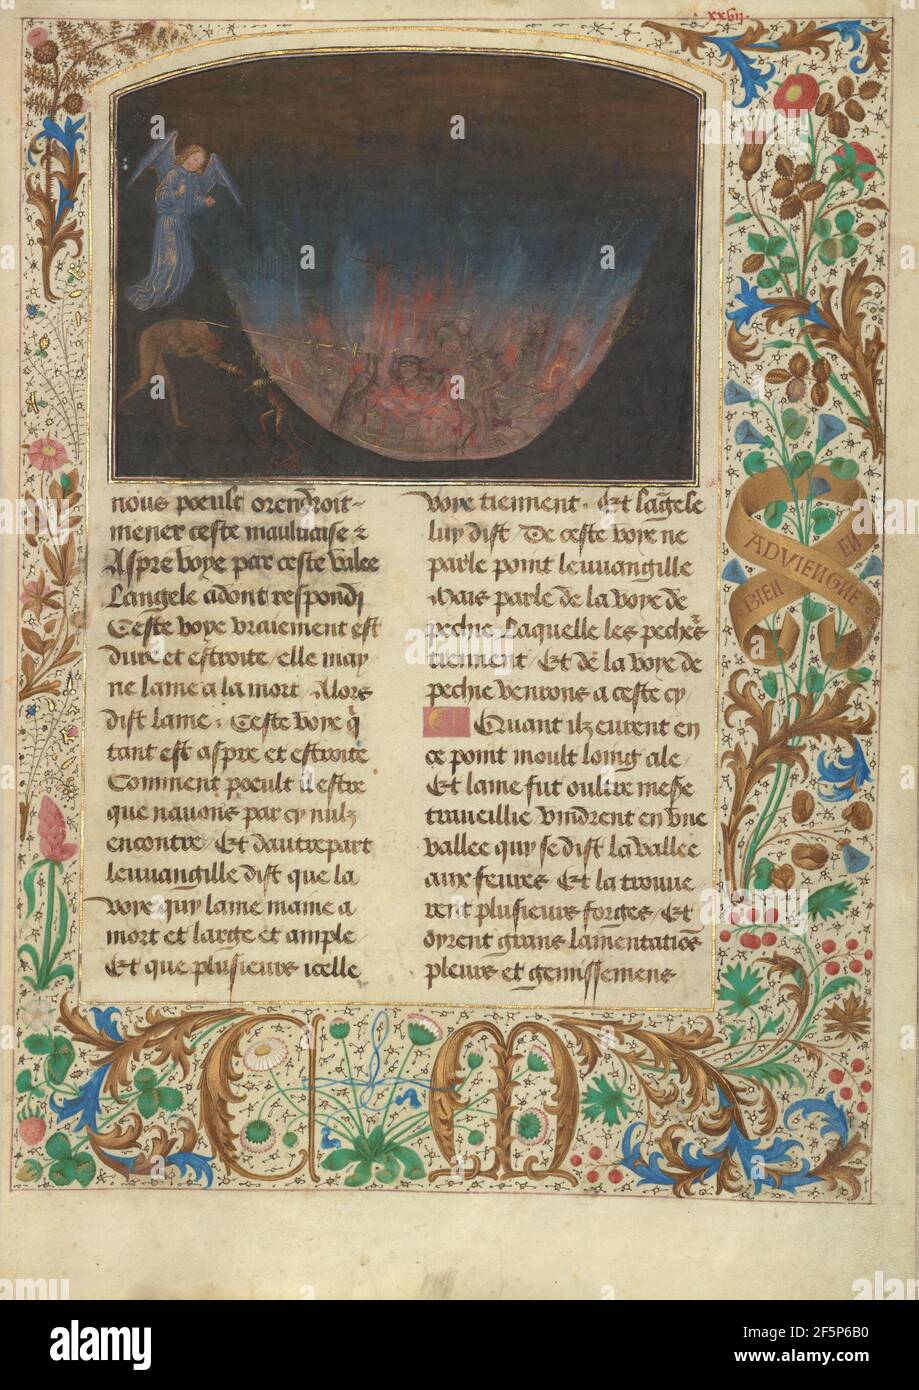 xxvij
nous pœult orendroit
mener ceste mauluaise &
Aspre voye par ceste valee
Langele adont respondj
Ceste voye vraiement est
dure et estroite / elle may
ne lame a la mort / Alors
dist lame . Ceste voye q̄
tant est aspre et estroite
Comment pœult il estre
que nauons par cy nulz
encontre / Et dautrepart
leuuangille dist que la
voye quy lame maine a
mort et large et ample /
Et que plusieurs icelle
voye tiennent . Et lāgele
luy dist / De ceste voye ne
parle point leuuangille
Mais parle de la voye de
pechie Laquelle les pechēs
tiennent / Et de la voye de
pechie venrons a ceste cy /
Quant ilz eurent en
ce point moult loing ale
Et lame fut oultre messe
traveillie / vindrent en vne
vallee quy se dist la vallee
aux feures / Et la trouue
rent plusieurs forges / Et
oyrent grans lamentatiōs
pleurs et gemissemens
BIEN EN
ADVIENGNE
C M
a alamy
alamy
Image ID: 2F5P6B0
www.alamy.com